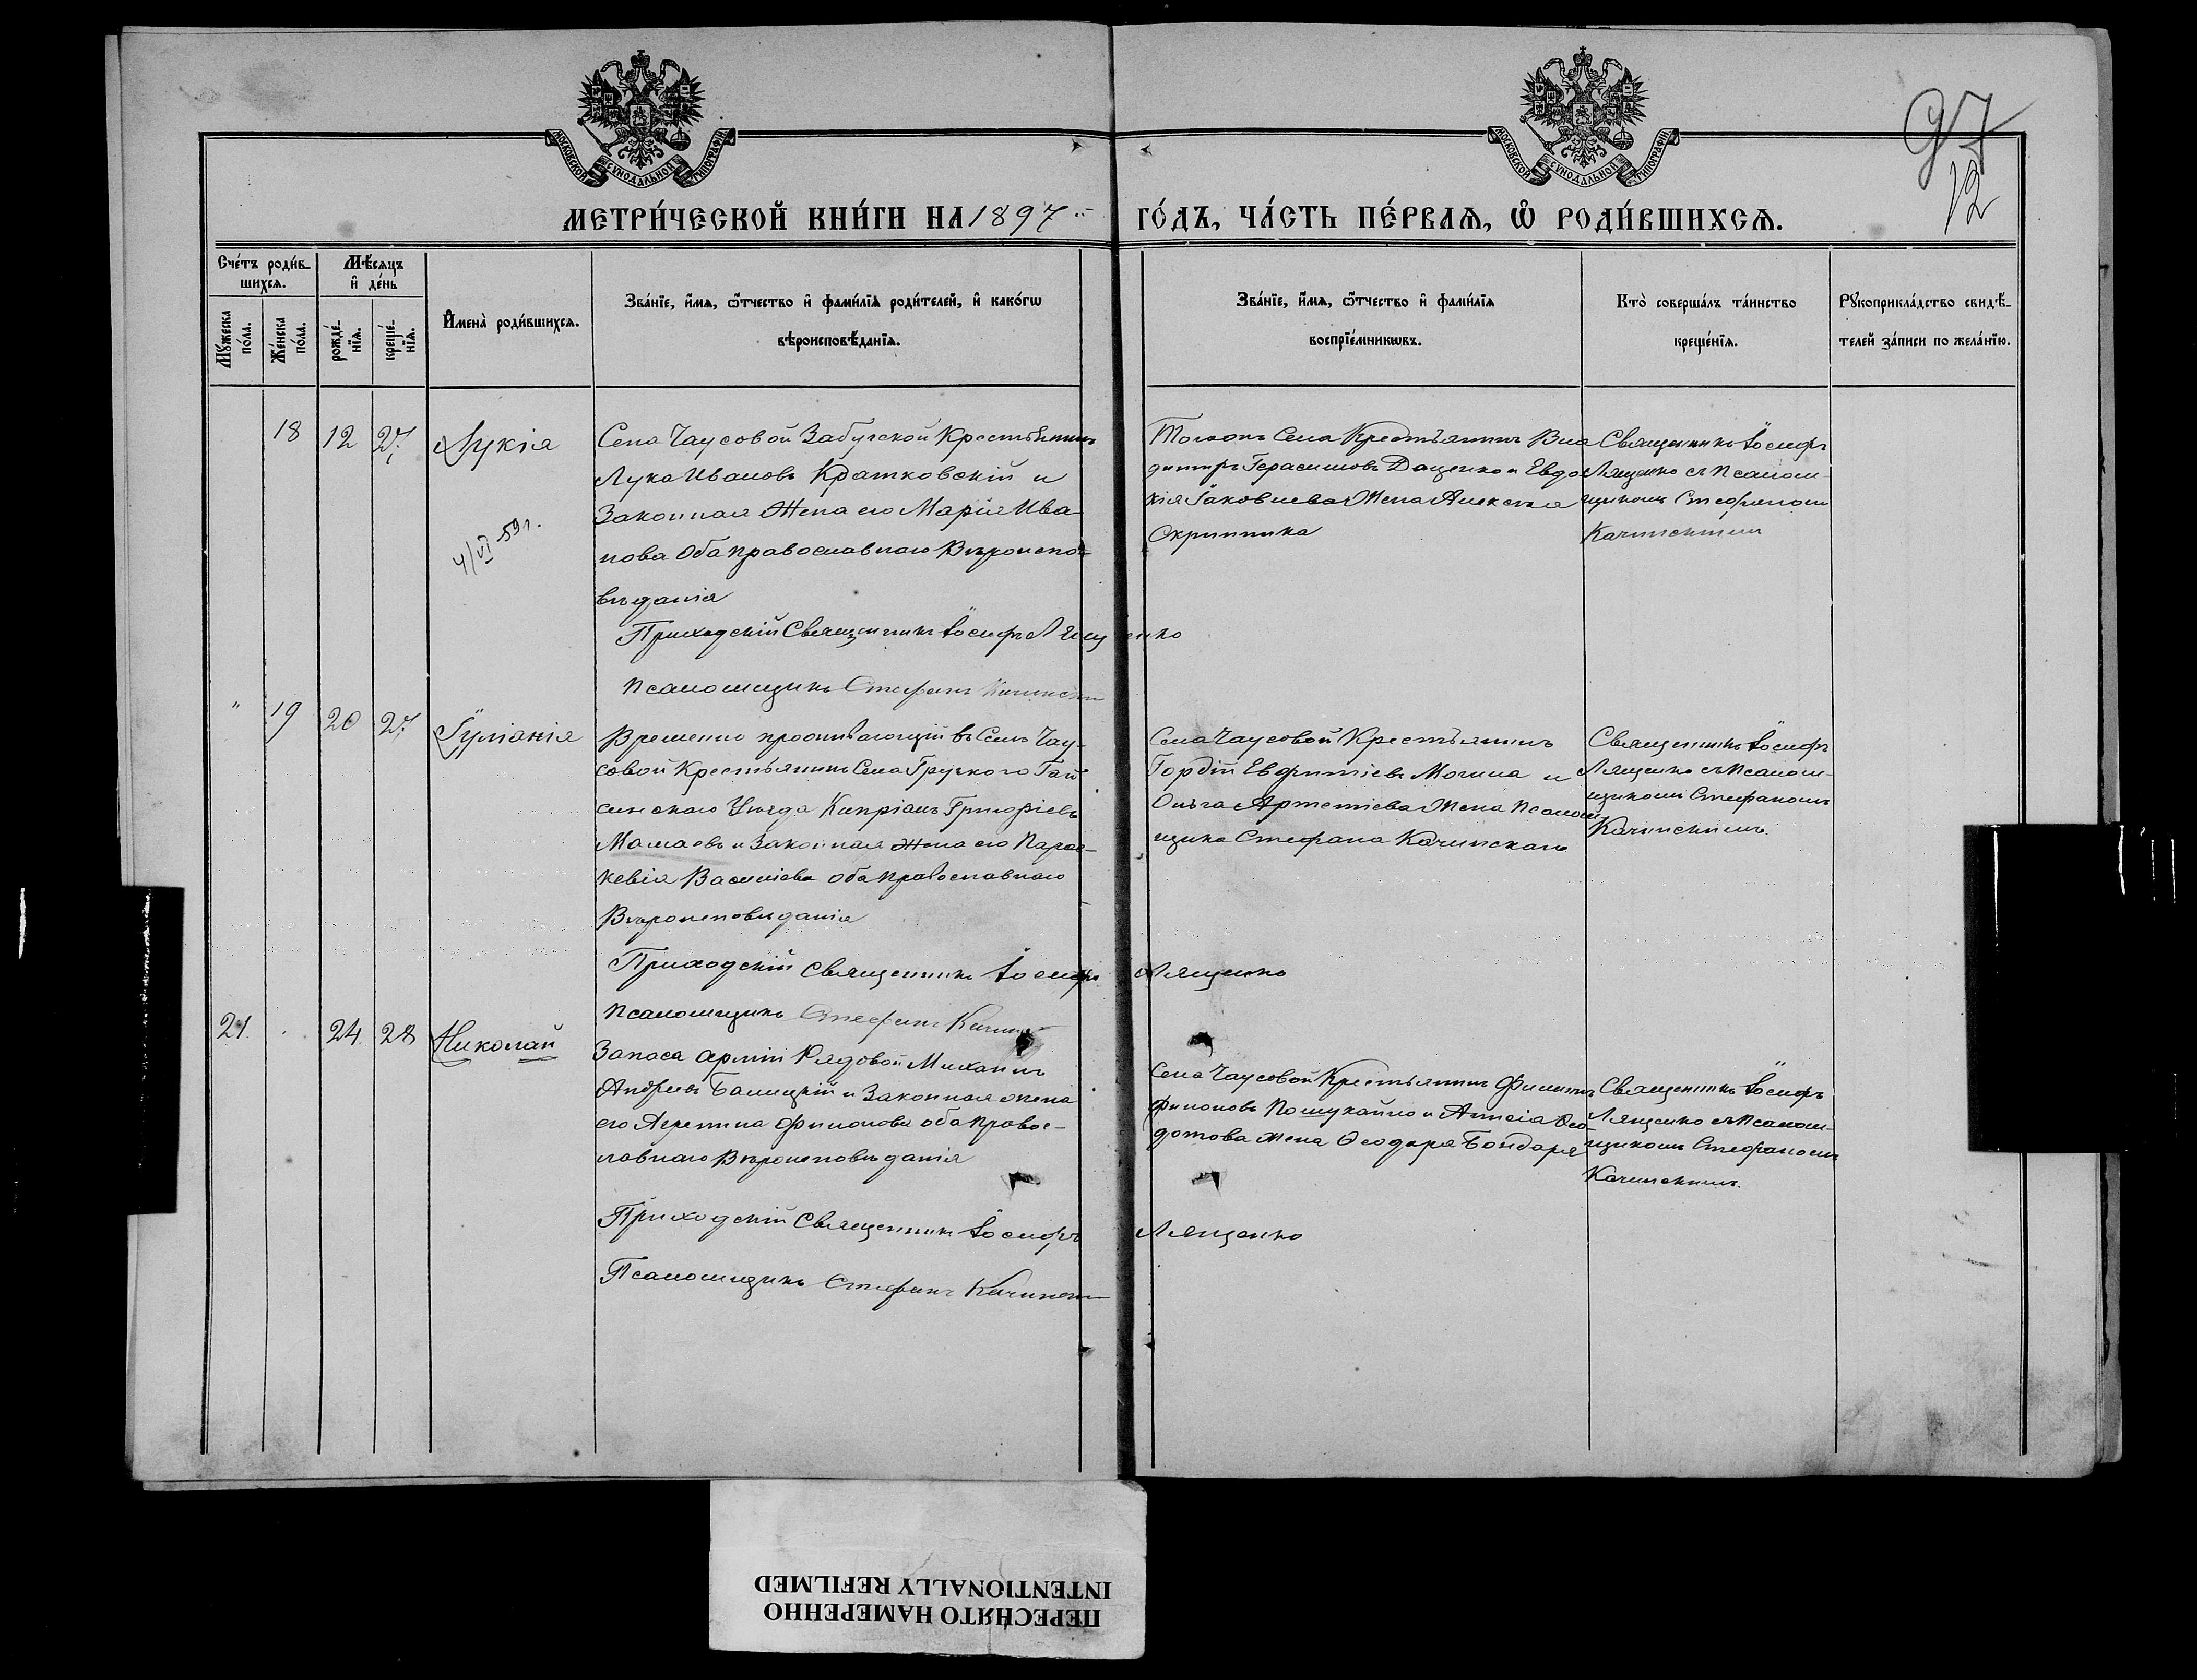 МОСКОВСКОЙ СѴНОДАЛЬНОЙ ТИПОГРАФІИ
МОСКОВСКОЙ СѴНОДАЛЬНОЙ ТИПОГРАФІИ
97
12
МЕТРИ́ЧЕСКОЙ КНИ́ГИ НА 1897
ГО́ДЪ, ЧА́СТЬ ПЕ́РВАѦ, Ѽ РОДИ́ВШИХСѦ.
Сче́тъ роди́в-
шихсѧ.
Мѣ́сѧцъ
и҆ де́нь
Мꙋ́жеска
по́ла.
Же́нска
по́ла.
рожде́-
нїѧ.
креще́-
нїѧ.
И҆мена̀ роди́вшихсѧ.
Зва́нїе, и҆́мѧ, ѻ҆́тчество и҆ фами́лїѧ роди́телей, и҆ како́гѡ
вѣроисповѣ́данїѧ.
Зва́нїе, и҆́мѧ, ѻ҆́тчество и҆ фами́лїѧ
воспрїе́мникѡвъ.
Кто̀ соверша́лъ та́инство
креще́нїѧ.
Рꙋкоприкла́дство свидѣ́-
телей за́писи по жела́нїю.
18 12 27 Лукія
4/VI-59 г.
Села Чаусовой Забугской Крестьянинъ
Лука Ивановъ Кратковскій и
Законная Жена его Марія Ива-
нова Оба православнаго Вѣроиспо-
вѣданія
Приходскій Священникъ Іосифъ Лященко
Псаломщикъ Стефанъ Качинскій
Тогоже Села Крестьянинъ Вла
димиръ Герасимовъ Даценко и Евдо
кія Іаковлева Жена Алексѣя
Скрипника
Священникъ Іосифъ
Лященко съ Псалом-
щикомъ Стефаномъ
Качинскимъ
" 19 20 27 Іуліанія
Временно проживающій въ Селѣ Чау-
совой Крестьянинъ Села Грузкого Гай
синскаго Уѣзда Кипріанъ Григоріевъ
Мамаевъ и Законная жена его Парас-
кевія Василіева оба православнаго
Вѣроисповѣданія
Приходскій Священникъ Іосифъ Лященко
Псаломщикъ Стефанъ Качинс
Села Чаусовой Крестьянинъ
Гордій Евфиміевъ Могила и
Ольга Артеміева Жена Псалом
щика Стефана Качинскаго
Священникъ Іосифъ
Лященко съ Псалом-
щикомъ Стефаномъ
Качинскимъ.
21. 24 28 Николай
Запаса арміи Рядовой Михаилъ
Андреевъ Балицкій и Законная жена
его Агрипина Филонова оба правос-
лавнаго Вѣроисповѣданія
Приходскій Священникъ Іосифъ Лященко
Псаломщикъ Стефанъ Качински
Села Чаусовой Крестьянинъ Филиппъ
Филоновъ Пошукайло и Ѳео-
дотова жена Ѳеодора Бондаря
Священникъ Іосифъ
Лященко съ Псалом-
щикомъ Стефаномъ
Качинскимъ.
ПЕРЕСНЯТО НАМЕРЕННО
INTENTIONALLY REFILMED